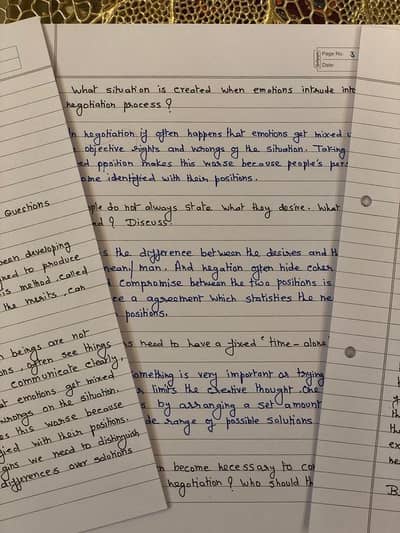 Page No. 3
Date:
What situation is created when emotions intrude into
negotiation process?
In negotiation if often happens that emotions get mixed
objective rights and wrongs of the situation. Taking
position makes this worse because people's
identified with their positions.
do not always state what they desire. What
? Discuss.
the difference between the desires and
mean/man. And negation often hide
compromise between the two positions is
a agreement which statisties the ne
positions.
need to have a fixed 'time-alone
omething is very important or trying
limits the creative thought. One
by arranging a set amount
range of possible solutions
become necessary to
negotiation? Who should th
Questions
been developing
to produce
is method called
the merits. Can
beings are not
often see things
communicate clearly,
emotions get mixed
wrongs on the situation.
this worse because
with their positions.
we need to distinguish
differences over solutions
B